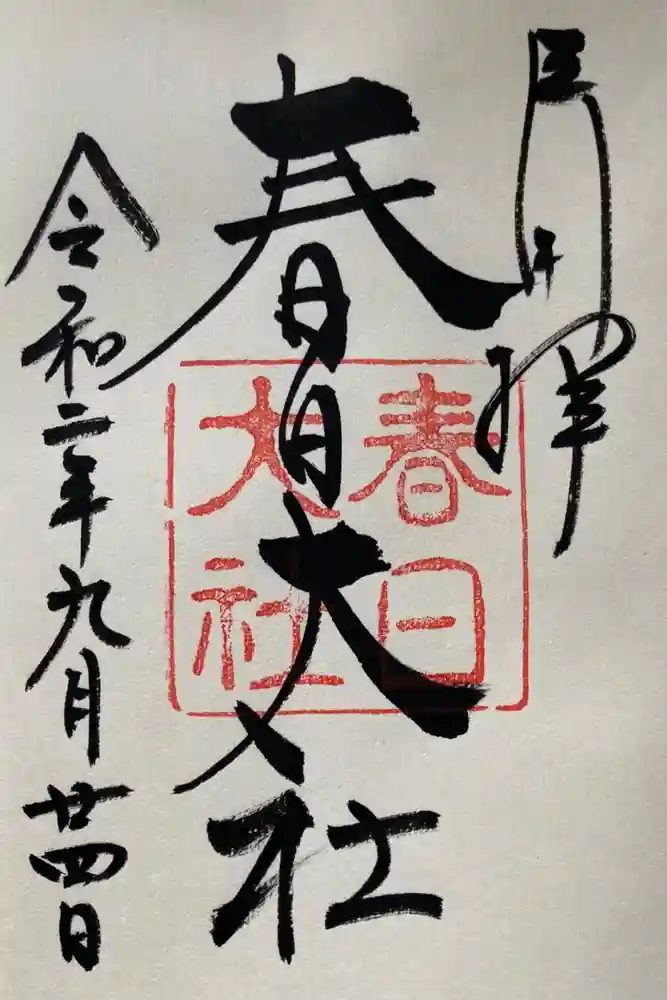 奉拝
春日大社
春日
大社
令和二年九月廿四日